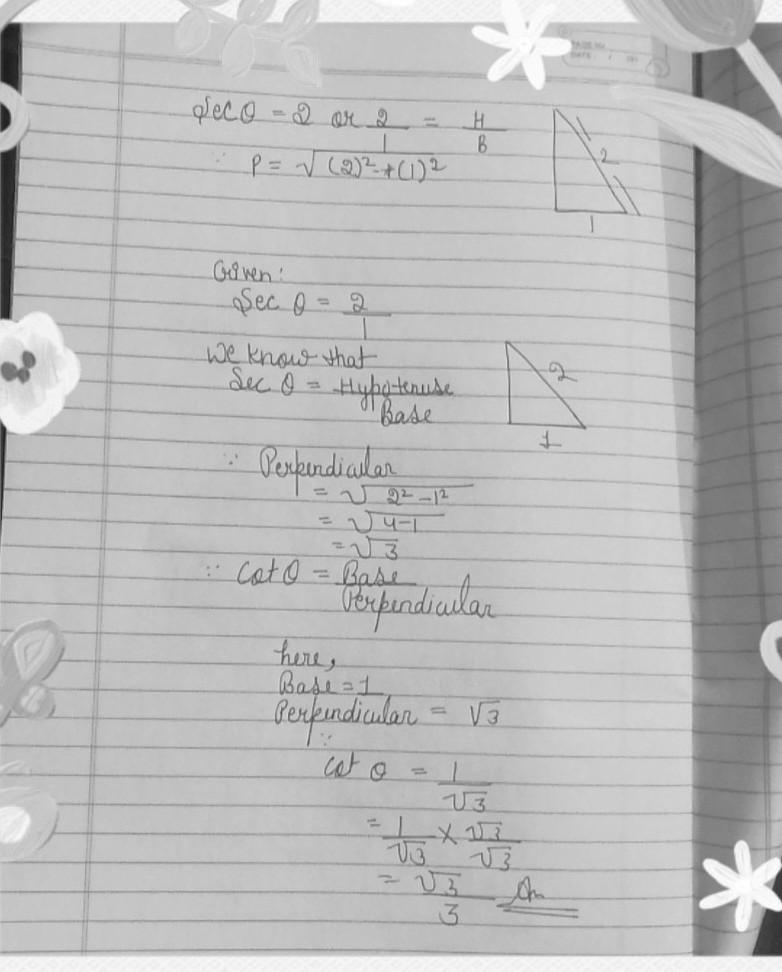 PAGE NO.
DATE: / /
Sec θ = 2 or 2/1 = H/B
∵ P = √(2)²+(1)²
2
1
Given:
Sec θ = 2/1
We know that
Sec θ = Hypotenuse/Base
2
1
∵ Perpendicular
= √2²-1²
= √4-1
= √3
∵ Cot θ = Base/Perpendicular
here,
Base = 1
Perpendicular = √3
∵
Cot θ = 1/√3
= 1/√3 × √3/√3
= √3/3 Ans